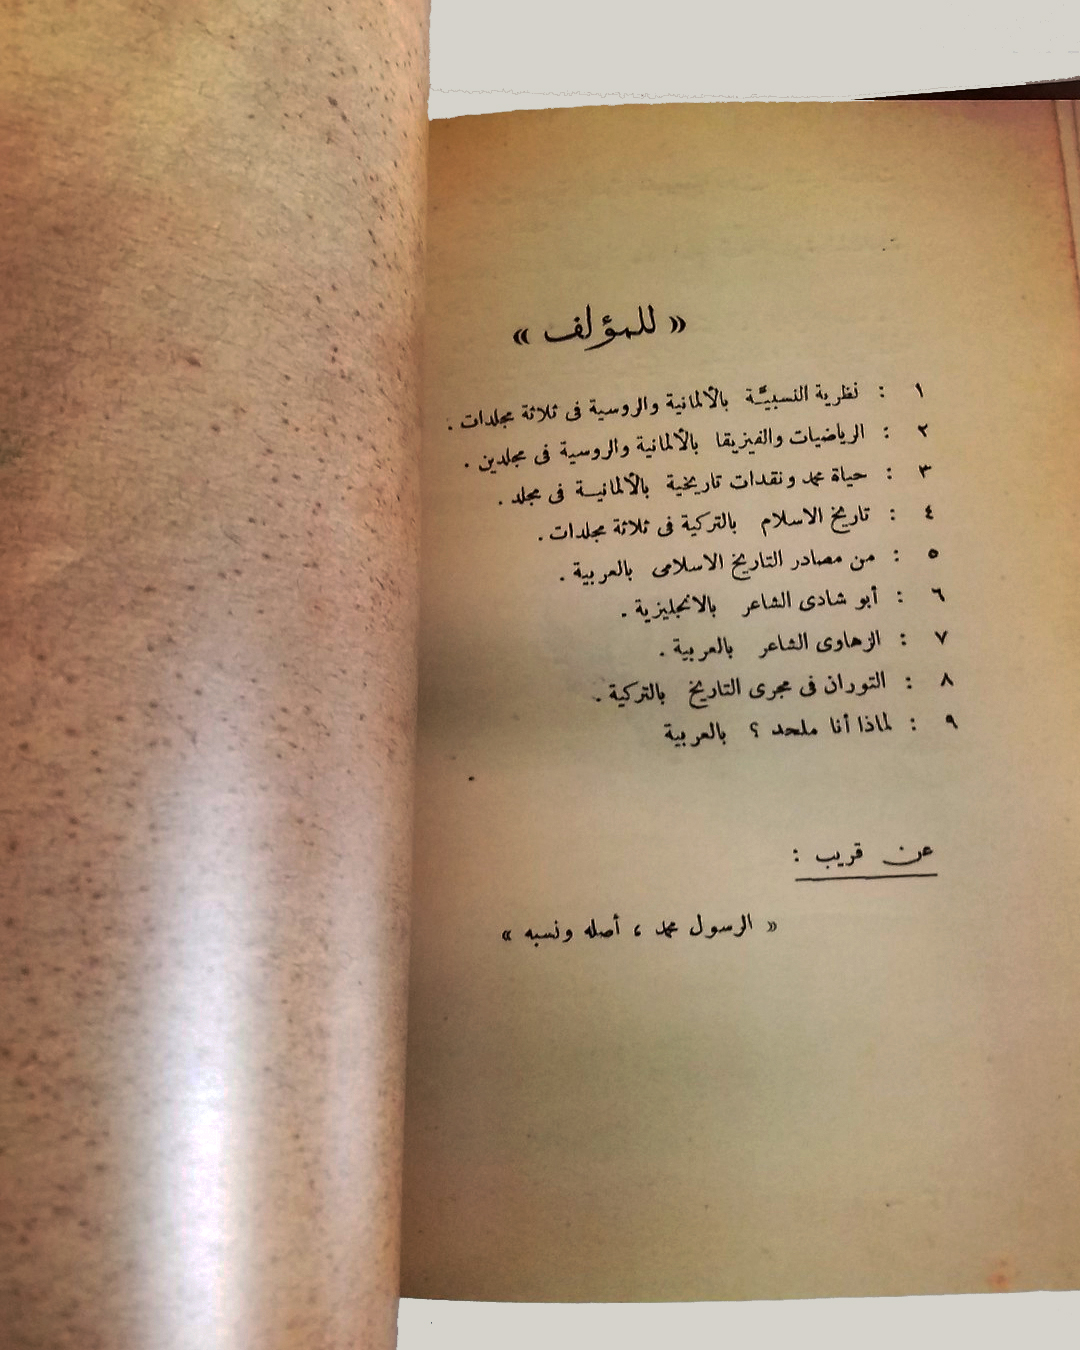 « للمؤلف »
١ : نظرية النسبيَّة بالألمانية والروسية فى ثلاثة مجلدات .
٢ : الرياضيات والفيزيقا بالألمانية والروسية فى مجلدين .
٣ : حياة محمد ونقدات تاريخية بالألمانية فى مجلد .
٤ : تاريخ الاسلام بالتركية فى ثلاثة مجلدات .
٥ : من مصادر التاريخ الاسلامى بالعربية .
٦ : أبو شادى الشاعر بالانجليزية .
٧ : الزهاوى الشاعر بالعربية .
٨ : التوران فى مجرى التاريخ بالتركية .
٩ : لماذا أنا ملحد ؟ بالعربية
عن قريب :
« الرسول محمد ، أصله ونسبه »